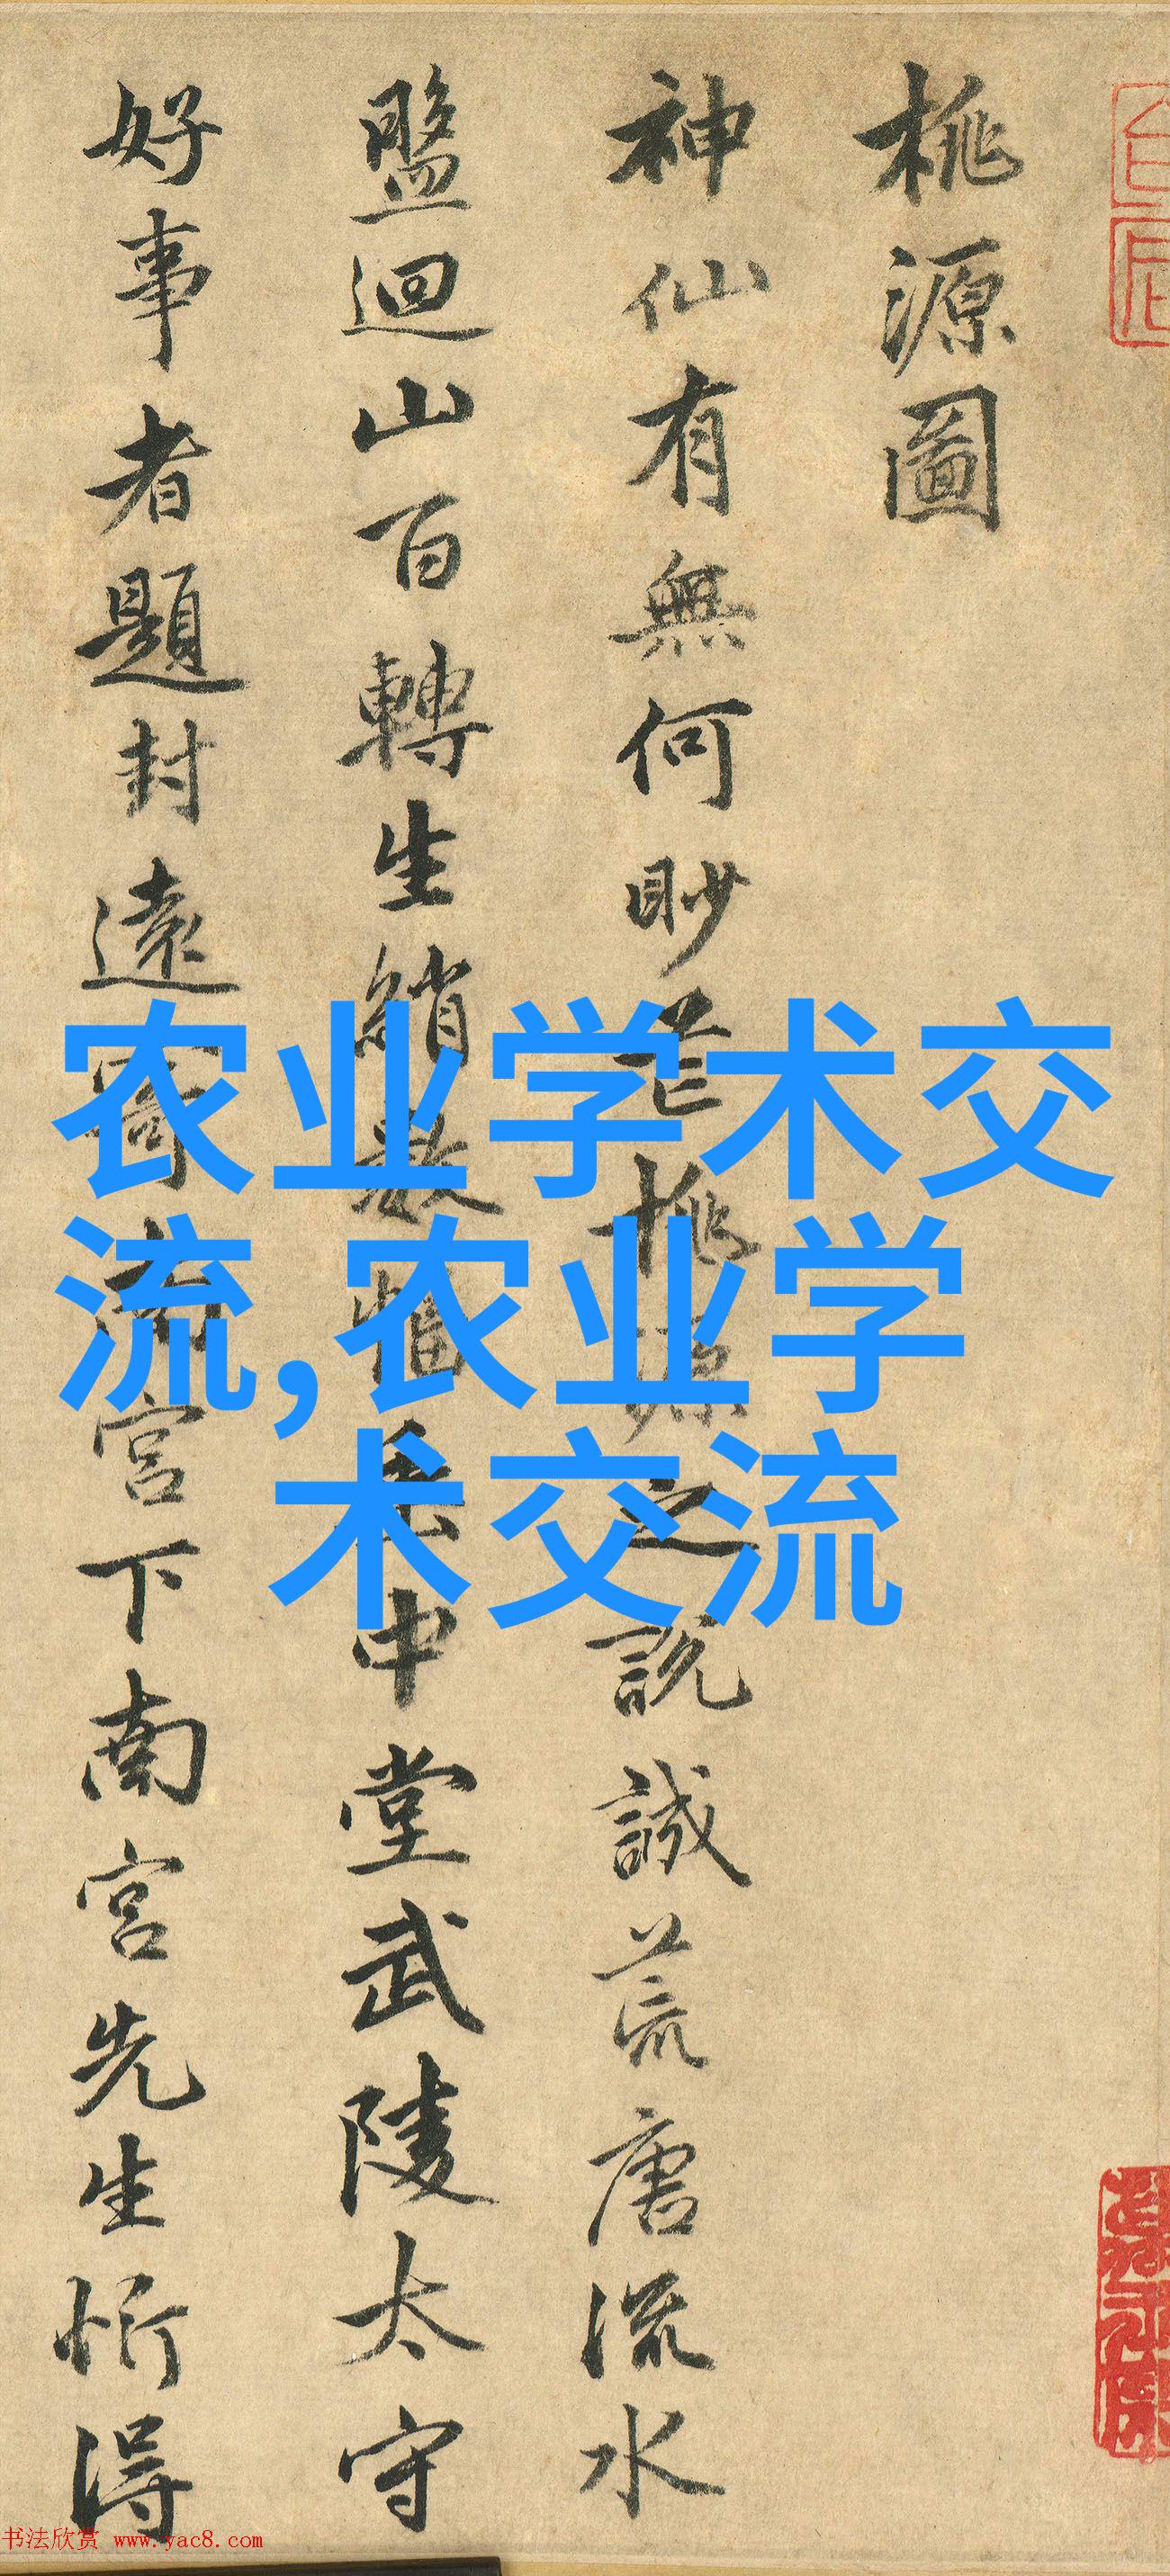 桃源圖
神仙有無何眇芒桃源之説誠荒唐流水
盤迴山百轉生綃數幅垂中堂武陵太守
好事者題封遠寄南宮下南宮先生忻得
农业学术交
流,农业学
术交流
书法欣赏 www.yac8.com